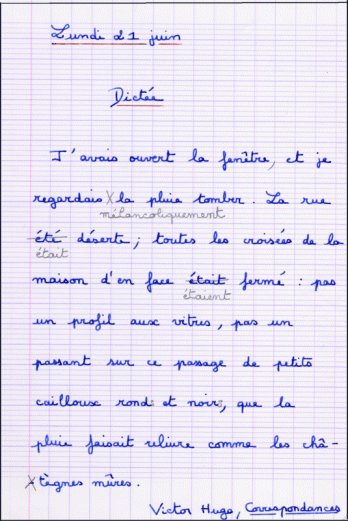 Lundi 21 juin
Dictée
J'avais ouvert la fenêtre, et je
regardais X la pluie tomber. La rue
mélancoliquement
été déserte; toutes les croisées de la
était
maison d'en face était fermé : pas
étaient
un profil aux vitres, pas un
passant sur ce passage de petits
cailloux ronds et noirs, que la
pluie faisait reliure comme les châ-
X tègnes mûres.
Victor Hugo, Correspondances